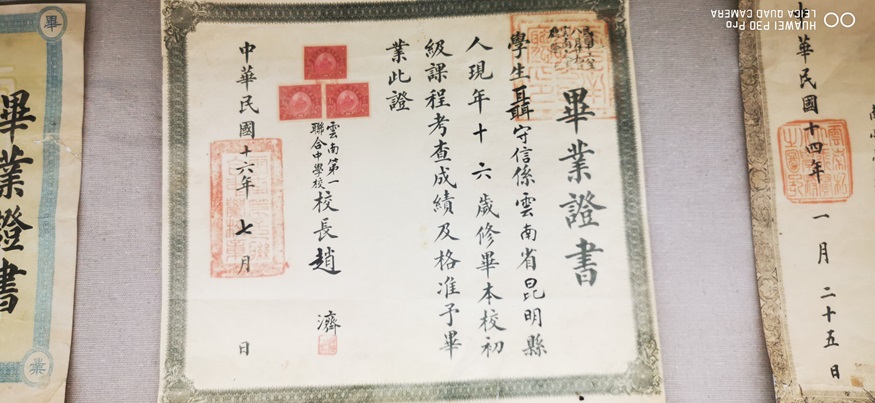 畢業證書
學生聶守信係雲南省昆明縣
人現年十六歲修畢本校初
級課程考查成績及格准予畢
業此證
雲南第一
聯合中學校
校長趙濟
中華民國十六年七月日
畢業證書
畢
業
中華民國十四年一月二十五日
HUAWEI P30 Pro
LEICA QUAD CAMERA